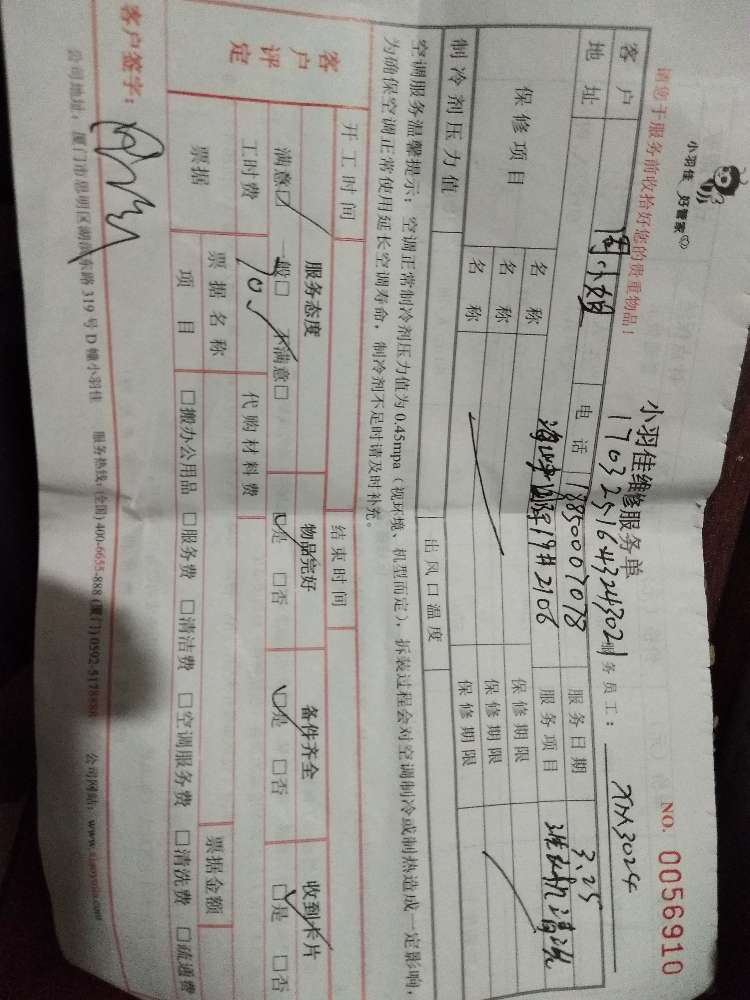 小羽佳 好管家
小羽佳维修服务单
NO. 0056910
170325164324302
请您于服务前收拾好您的贵重物品!
服务员工: XM3024
客户 周小姐 电话 18850007078 服务日期 3.25
地址 19#2106 服务项目 清洗
保修项目 名称 保修期限
名称 保修期限
名称 保修期限
制冷剂压力值 出风口温度
空调服务温馨提示:空调正常制冷剂压力值为0.45mpa(视环境、机型而定),拆装过程会对空调制冷或制热造成一定影响,
为确保空调正常使用延长空调寿命,制冷剂不足时请及时补充。
开工时间 结束时间
客户评定 服务态度 物品完好 备件齐全 收到卡片
满意☑ 一般□ 不满意□ ☑是 □否 ☑是 □否 ☑是 □否
工时费 代购材料费
票据 票据名称 票据金额
项目 □搬办公用品 □服务费 □清洁费 □空调服务费 □清洗费 □疏通费
客户签字:
公司地址:厦门市思明区湖滨东路319号D幢小羽佳 服务热线:(全国)400-6655-888(厦门)0592-5178888 公司网站:www.xiaoyujia.com